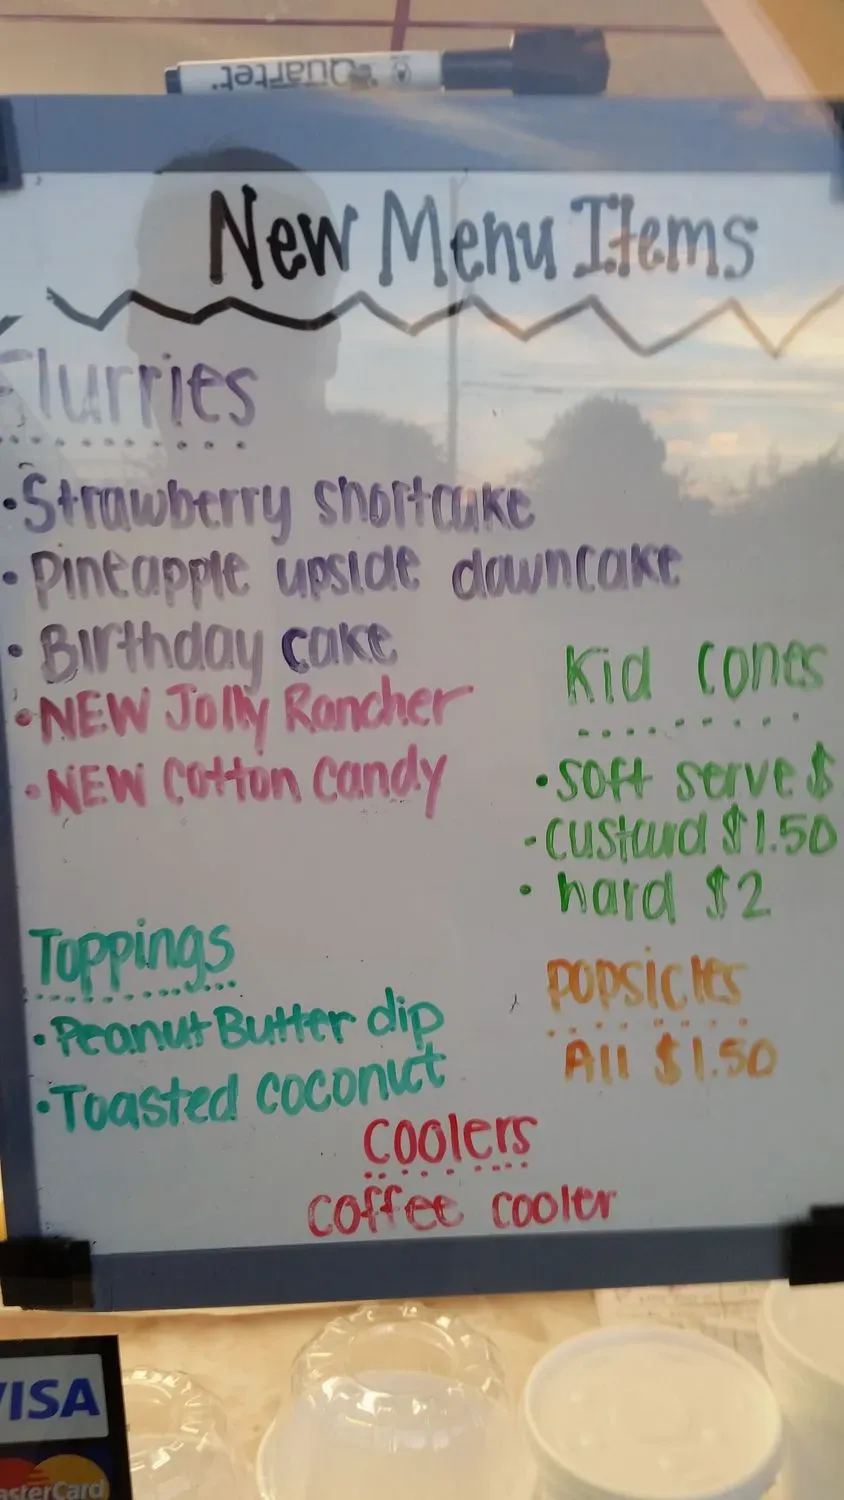 Quartet
New Menu Items
Flurries
• Strawberry shortcake
• Pineapple upside downcake
• Birthday cake
• NEW Jolly Rancher
• NEW Cotton Candy
Kid Cones
• soft serve $
• custard $1.50
• hard $2
Toppings
• Peanut Butter dip
• Toasted coconut
Popsicles
All $1.50
Coolers
coffee cooler
VISA
MasterCard